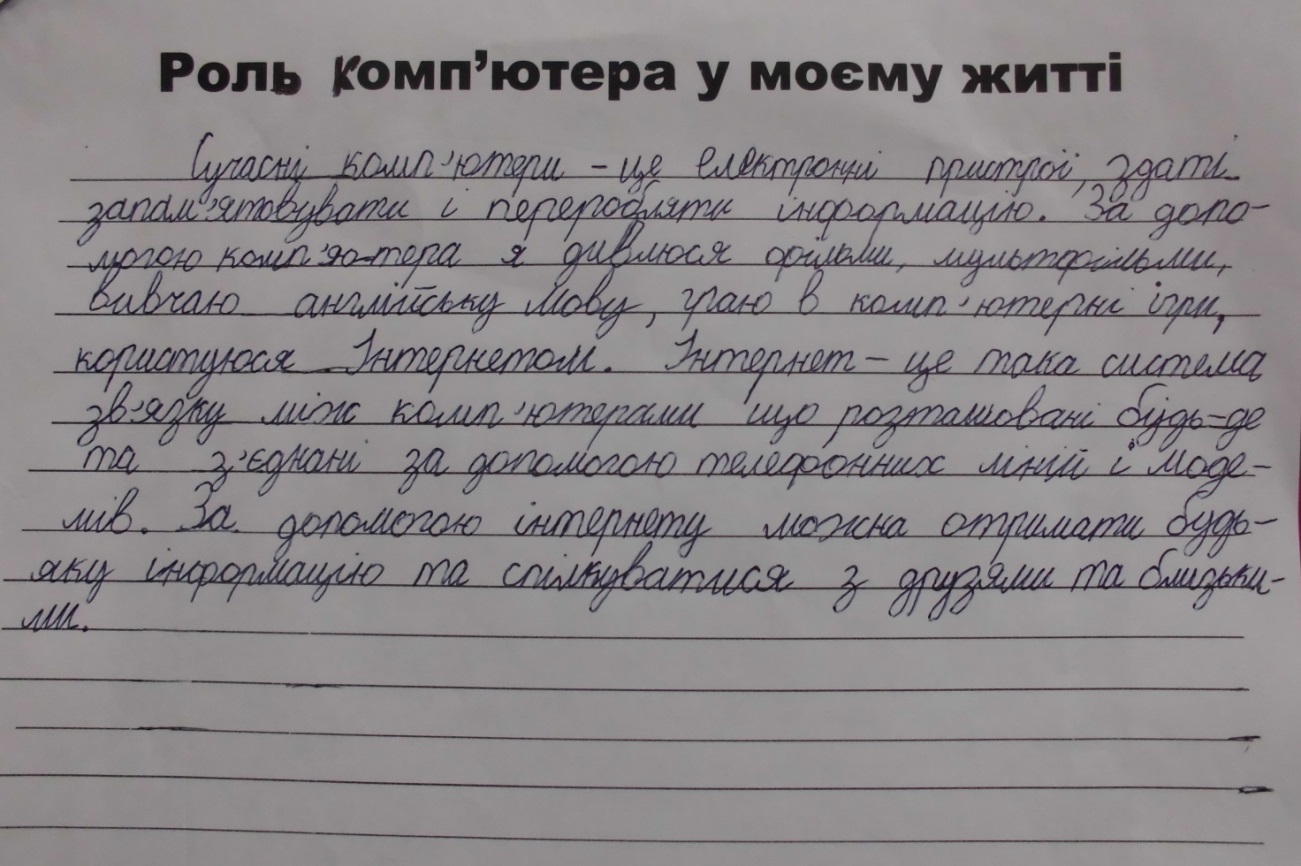 Роль комп’ютера у моєму житті
Сучасні комп'ютери – це електронні пристрої, здаті
запам'ятовувати і переробляти інформацію. За допо-
могою комп'ю-тера я дивлюся фільми, мультфільми,
вивчаю англійську мову, граю в комп'ютерні ігри,
користуюся Інтернетом. Інтернет – це така система
зв'язку між комп'ютерами що розташовані будь-де
та з'єднані за допомогою телефонних ліній і моде-
мів. За допомогою інтернету можна отримати будь-
яку інформацію та спілкуватися з друзями та близьки-
ми.